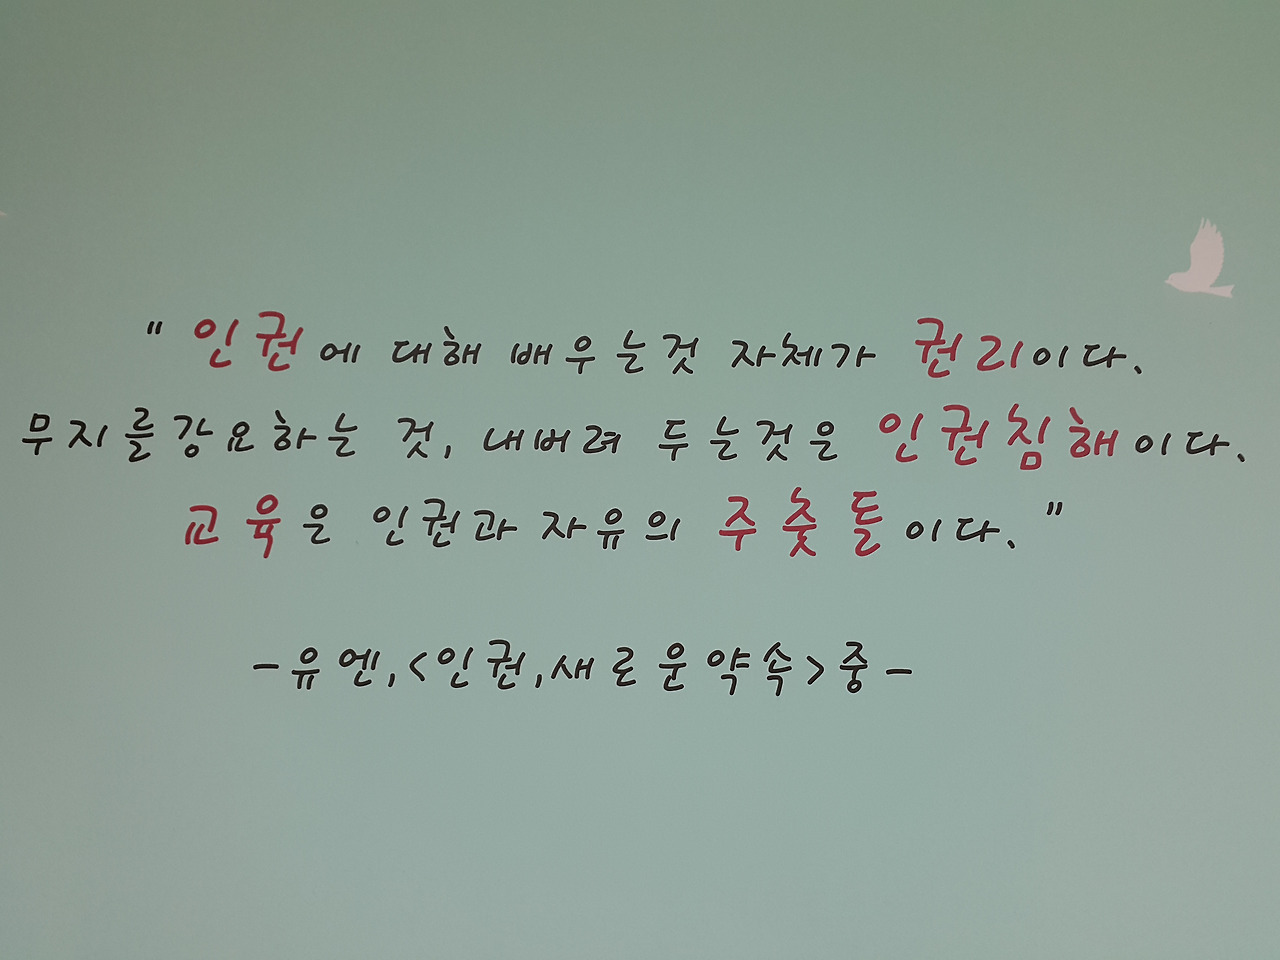 "인권에 대해 배우는것 자체가 권리이다.
무지를강요하는 것, 내버려 두는것은 인권침해이다.
교육은 인권과 자유의 주춧돌이다."
-유엔,<인권,새로운약속>중-